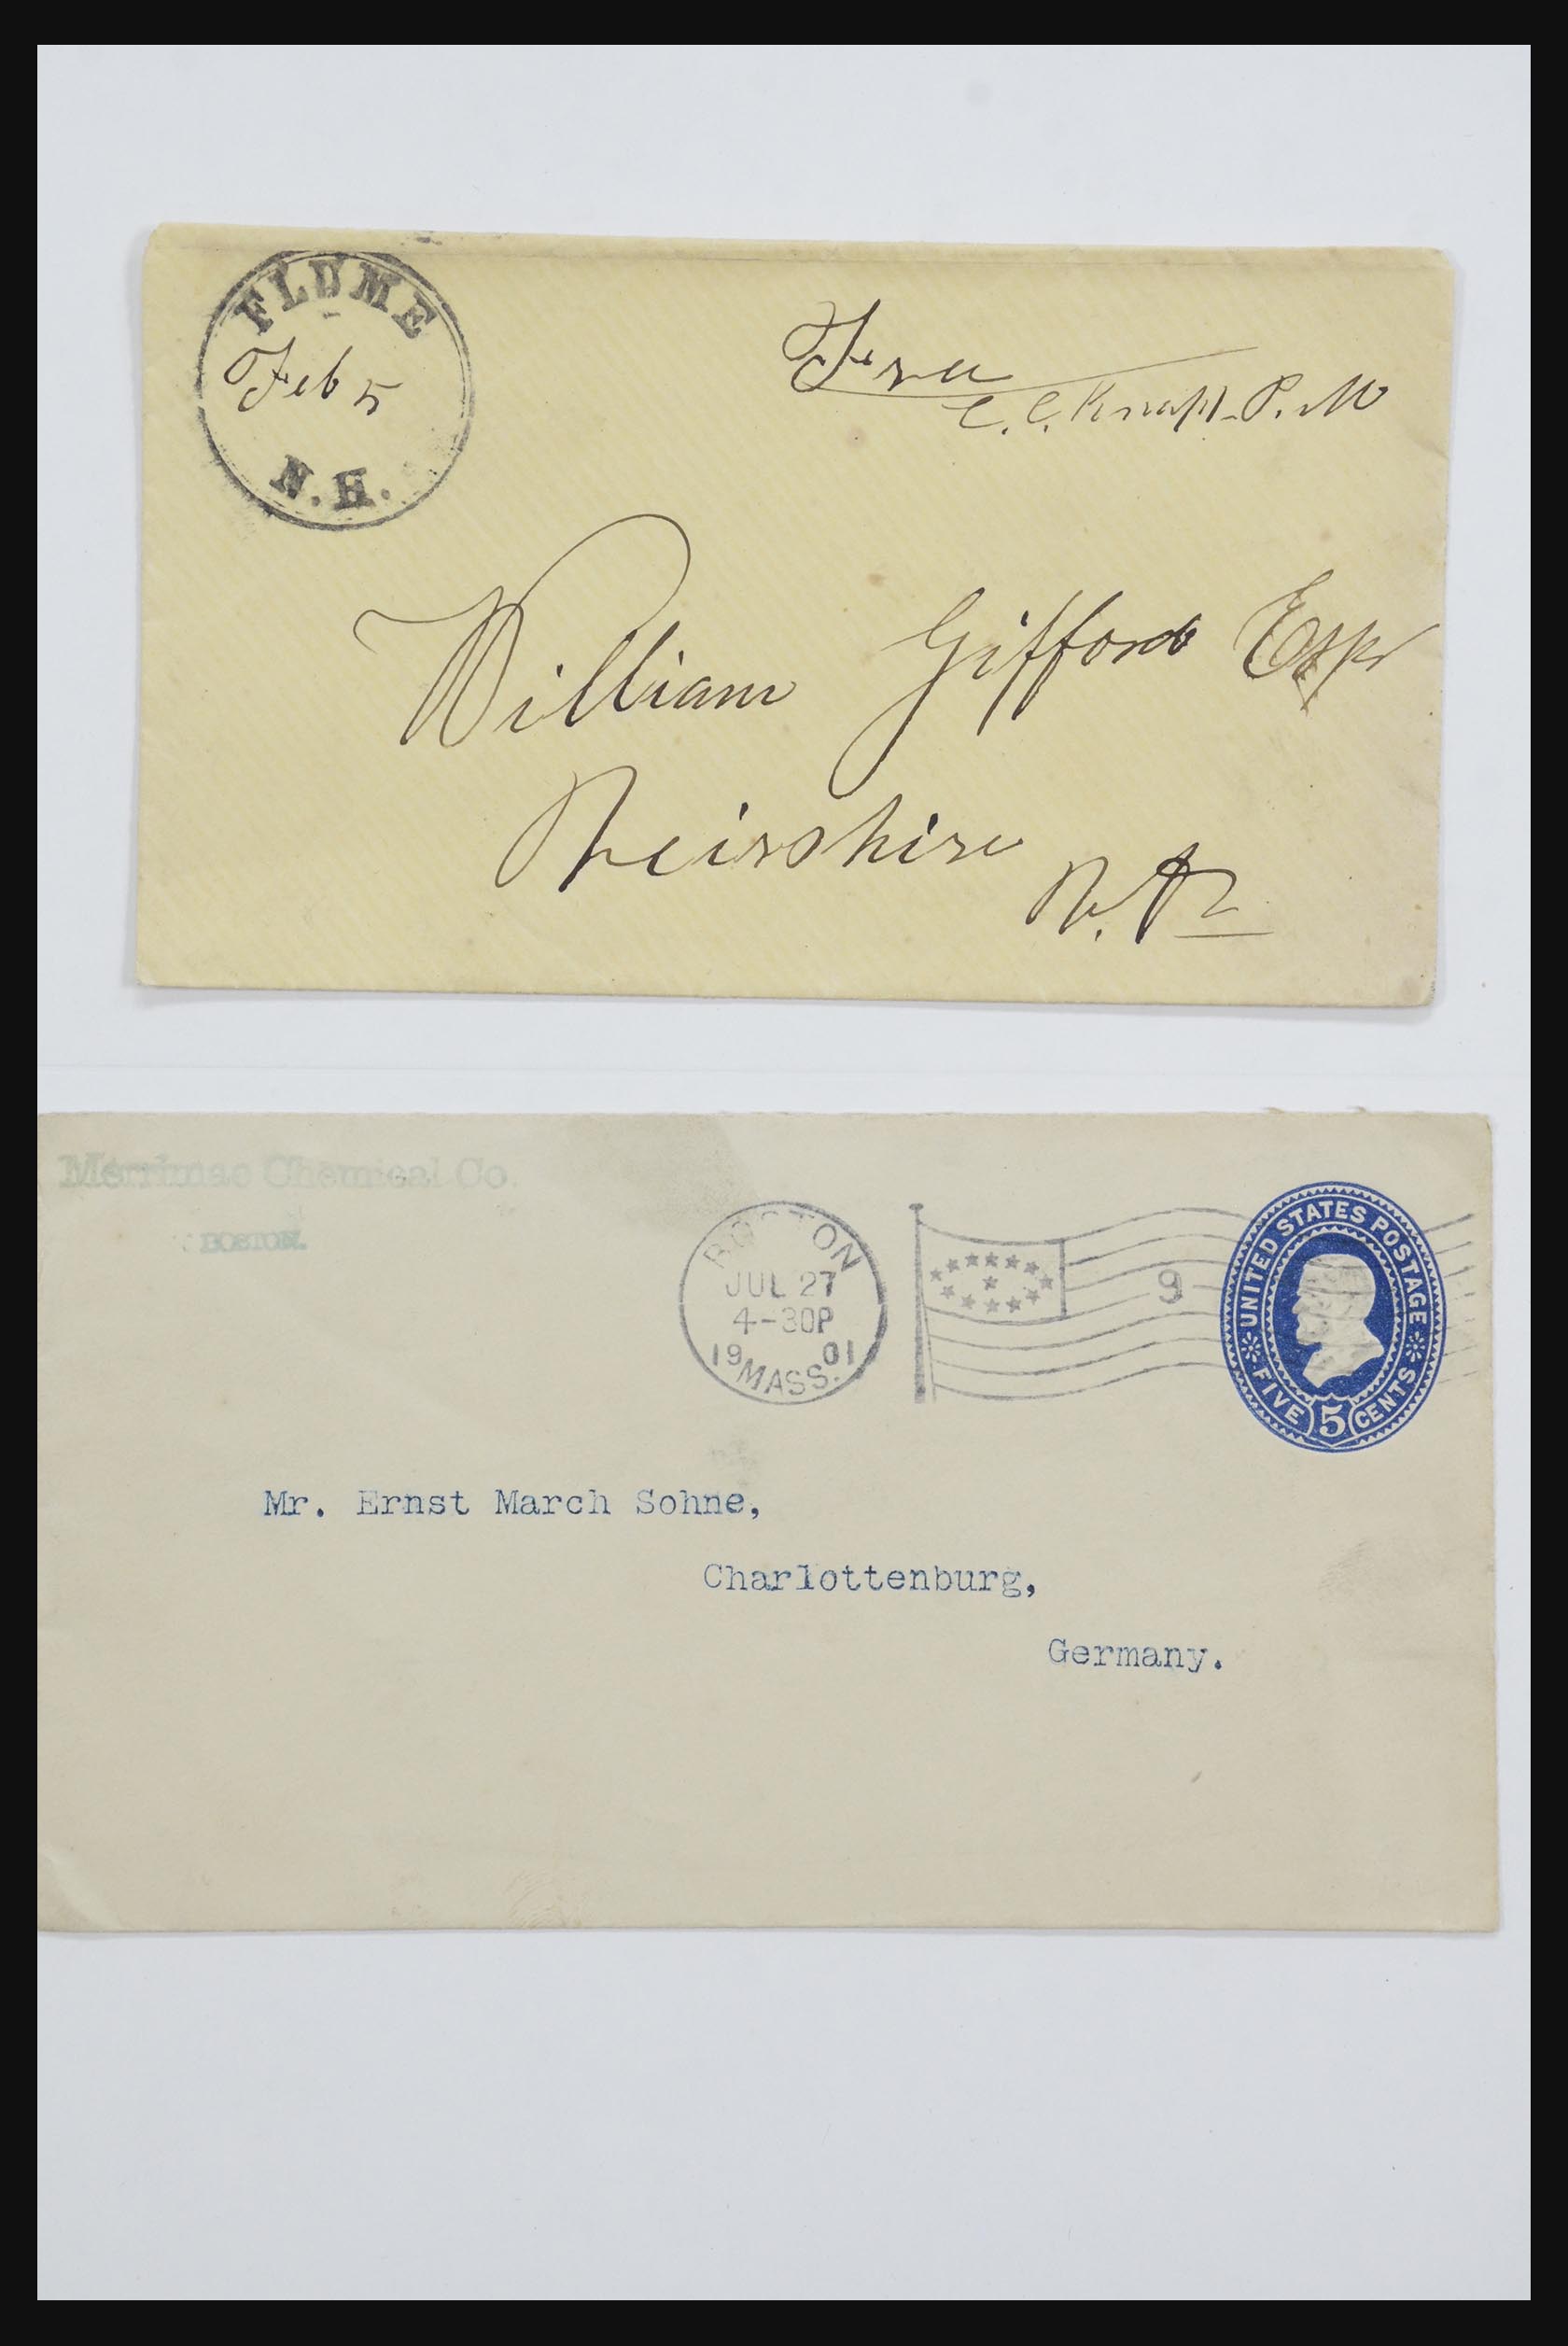 FLUME
Feb 5
N.H.
Free
C. C. Knapp P. M
William Gifford Esqr
N. H
Merrimac Chemical Co.
BOSTON.
BOSTON
JUL 27
4-30P
19 01
MASS.
9
UNITED STATES POSTAGE
FIVE 5 CENTS
Mr. Ernst March Sohne,
Charlottenburg,
Germany.